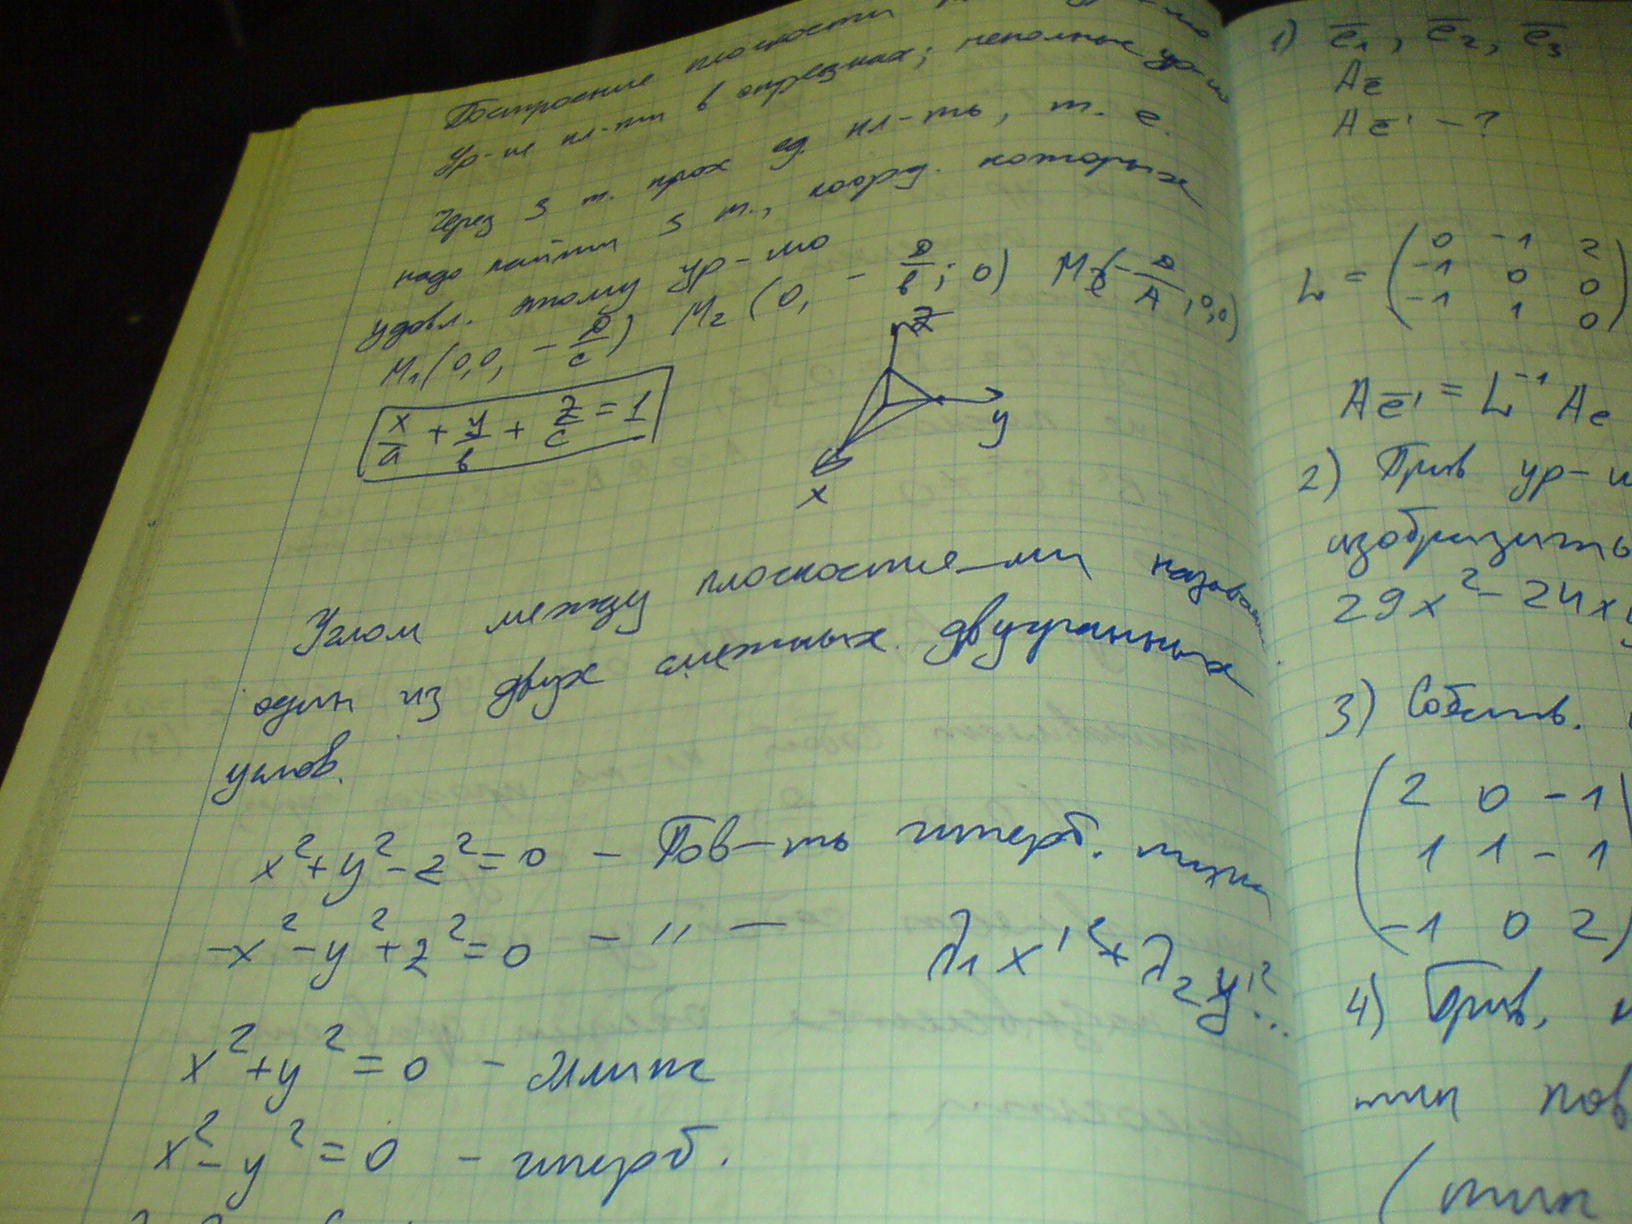 Построение плоскости
Ур-ие пл-ти в отрезках; неполные ур-ия
Через 3 т. прох ед. пл-ть, т. е.
надо найти 3 т., коорд. которых
удовл. этому ур-ию
M₁(0,0, -D/C) M₂(0, -D/B; 0) M₃(-D/A, 0,0)
x/a + y/b + z/c = 1
z
y
x
Углом между плоскостя-ми называет
один из двух смежных двугранных
углов.
x² + y² - z² = 0 - Пов-ть гиперб. типа
-x² - y² + z² = 0 - " -
λ₁x'² + λ₂y'²...
x² + y² = 0 - эллипс
x² - y² = 0 - гиперб.
1) e̅₁, e̅₂, e̅₃
Ae̅
Ae̅' - ?
L = (0 -1 2
-1 0 0
-1 1 0)
Ae̅' = L⁻¹ Ae
2) Прив ур-и
изобразить
29x² - 24xy
3) Собств.
(2 0 -1
1 1 -1
-1 0 2)
4) Прив.
тип пов
(тип